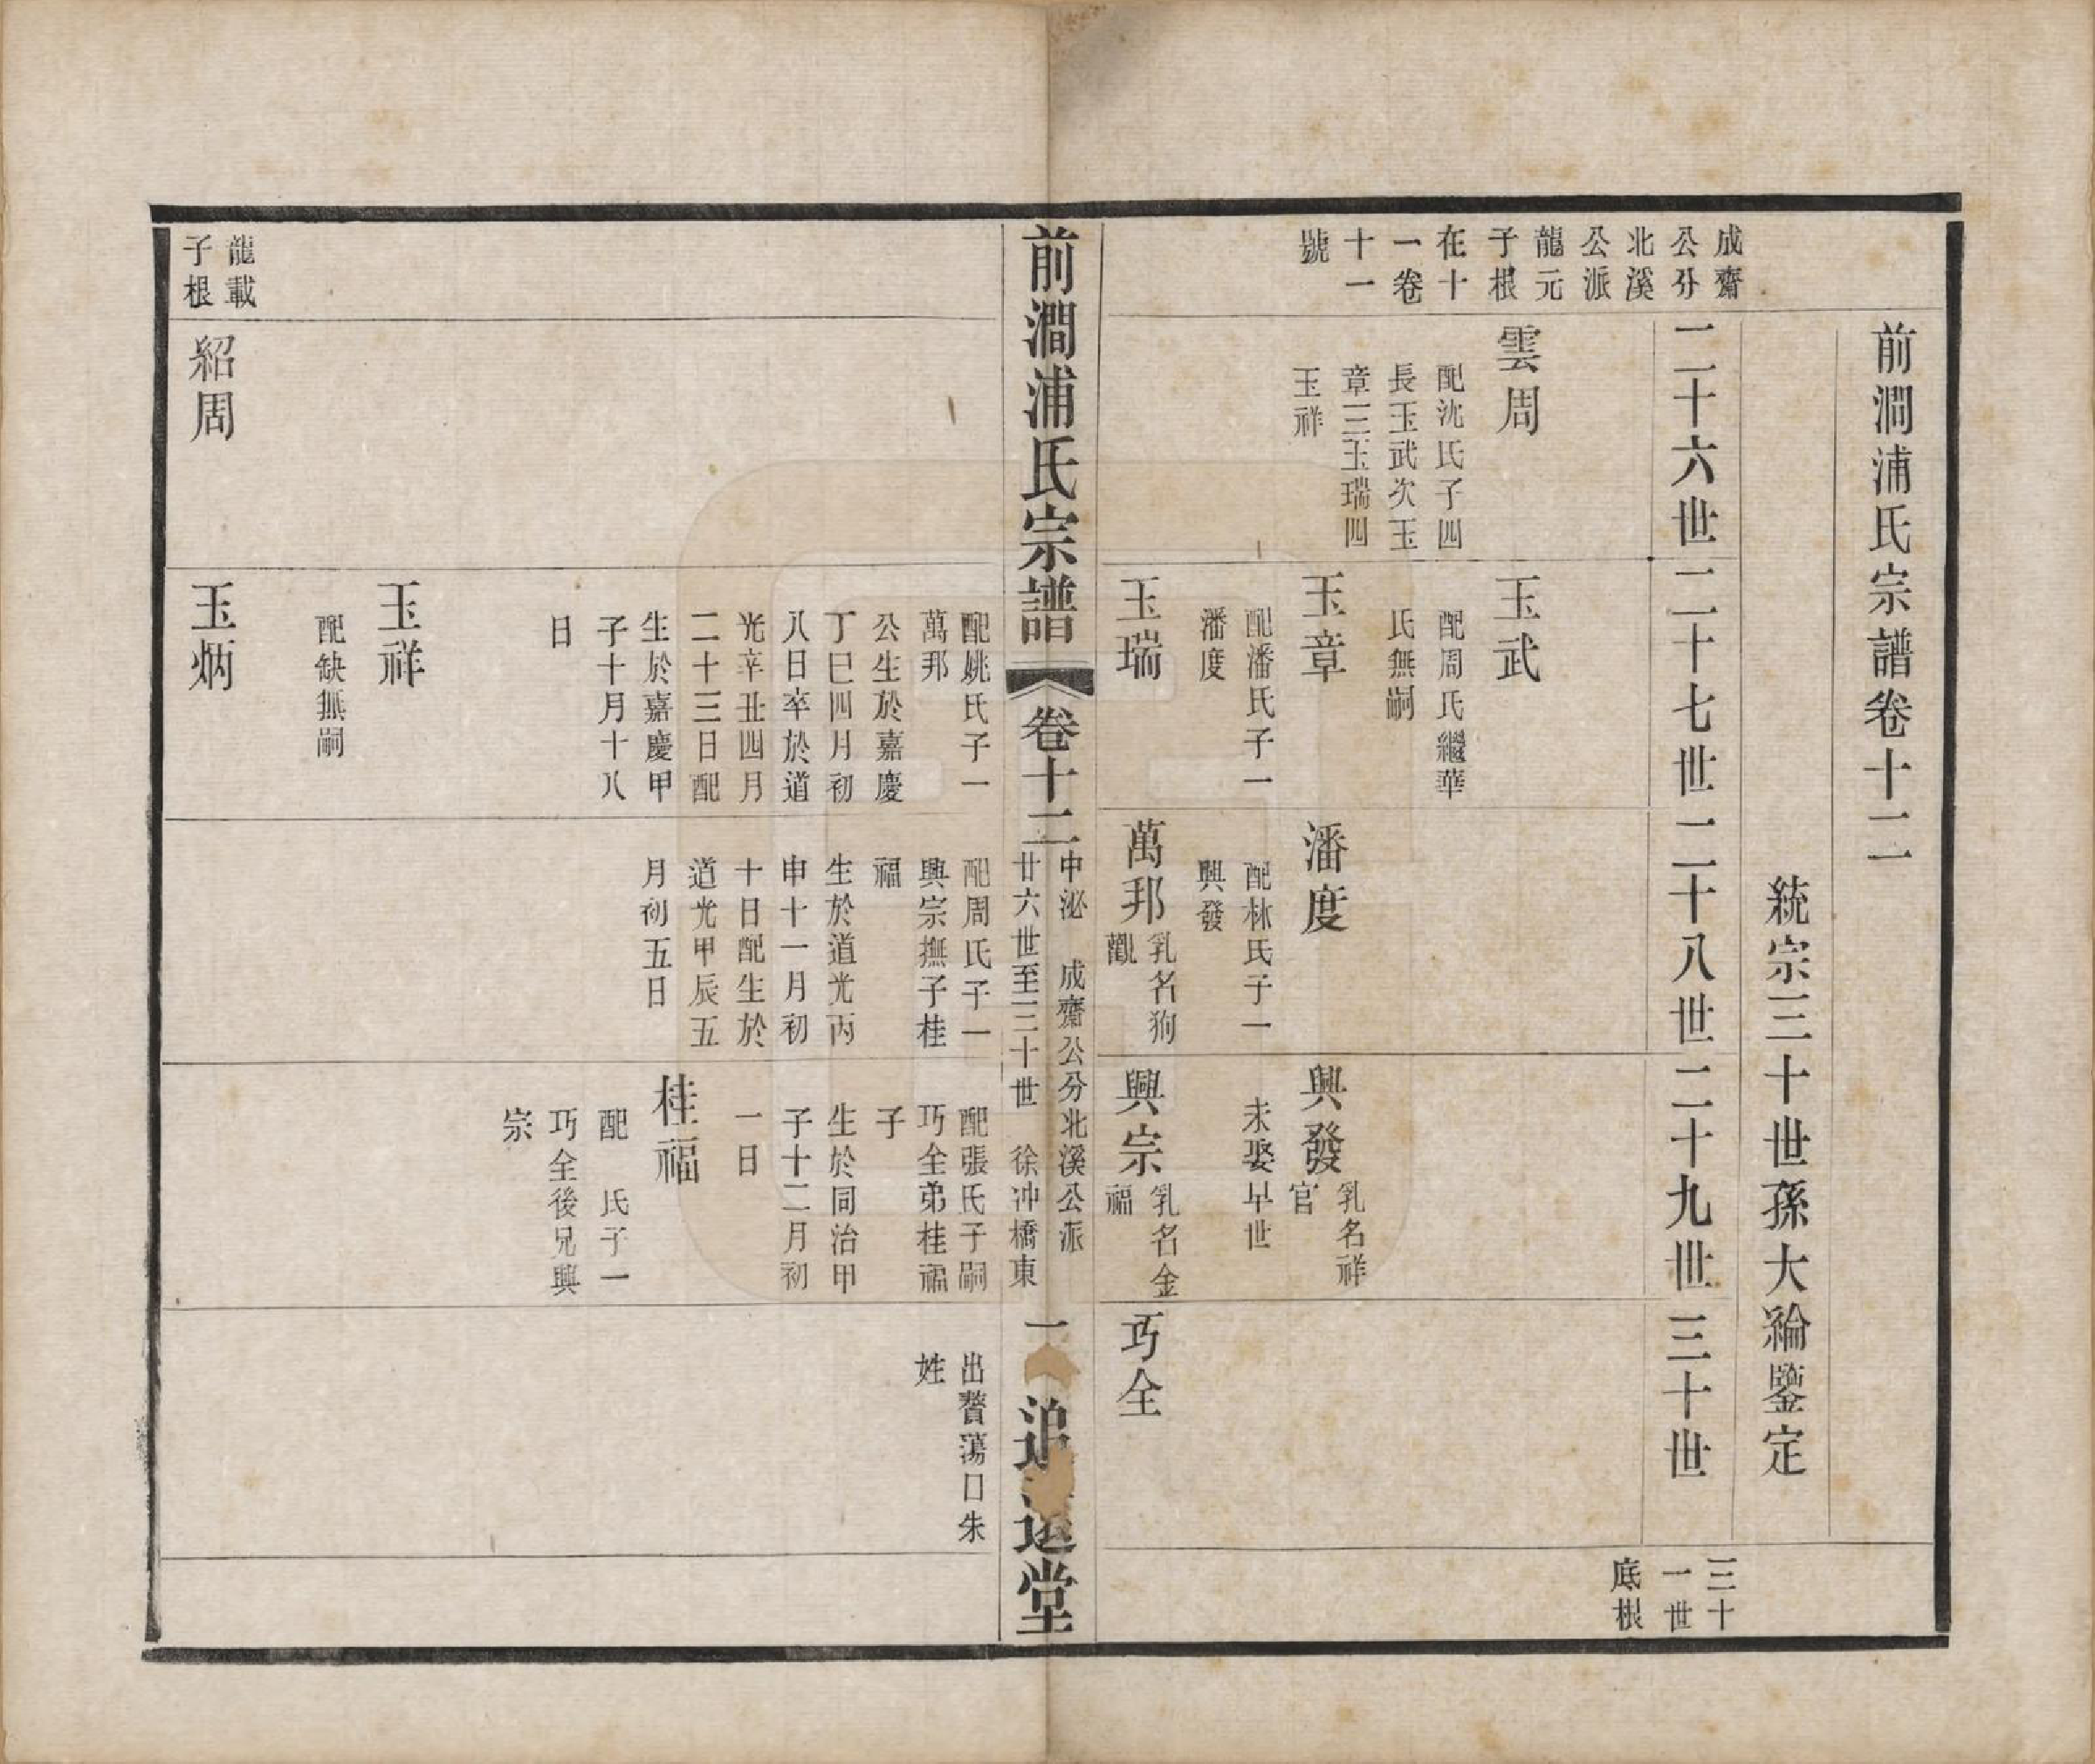 前澗浦氏宗譜卷十二
統宗三十世孫大綸鑒定
成齋
公分
北溪
公派
龍元
子根
在十
一卷
十一
號
二十六世
二十七世
二十八世
二十九世
三十世
三十
一世
底根
雲周
配沈氏子四
長玉武次玉
章三玉瑞四
玉祥
玉武
配周氏繼華
氏無嗣
玉章
配潘氏子一
潘度
潘度
配林氏子一
興發
興發
乳名祥
官
未娶早世
玉瑞
萬邦
乳名狗
觀
興宗
乳名金
福
巧全
前澗浦氏宗譜
卷十二
中泌 成齋公分北溪公派
廿六世至三十世 徐冲橋東
一
追遠堂
配姚氏子一
萬邦
公生於嘉慶
丁巳四月初
八日卒於道
光辛丑四月
二十三日配
生於嘉慶甲
子十月十八
日
配周氏子一
興宗撫子桂
福
生於道光丙
申十一月初
十日配生於
道光甲辰五
月初五日
配張氏子嗣
巧全弟桂福
子
生於同治甲
子十二月初
一日
出贅蕩口朱
姓
桂福
配 氏子一
巧全後兄興
宗
玉祥
配缺無嗣
龍載
子根
紹周
玉炳